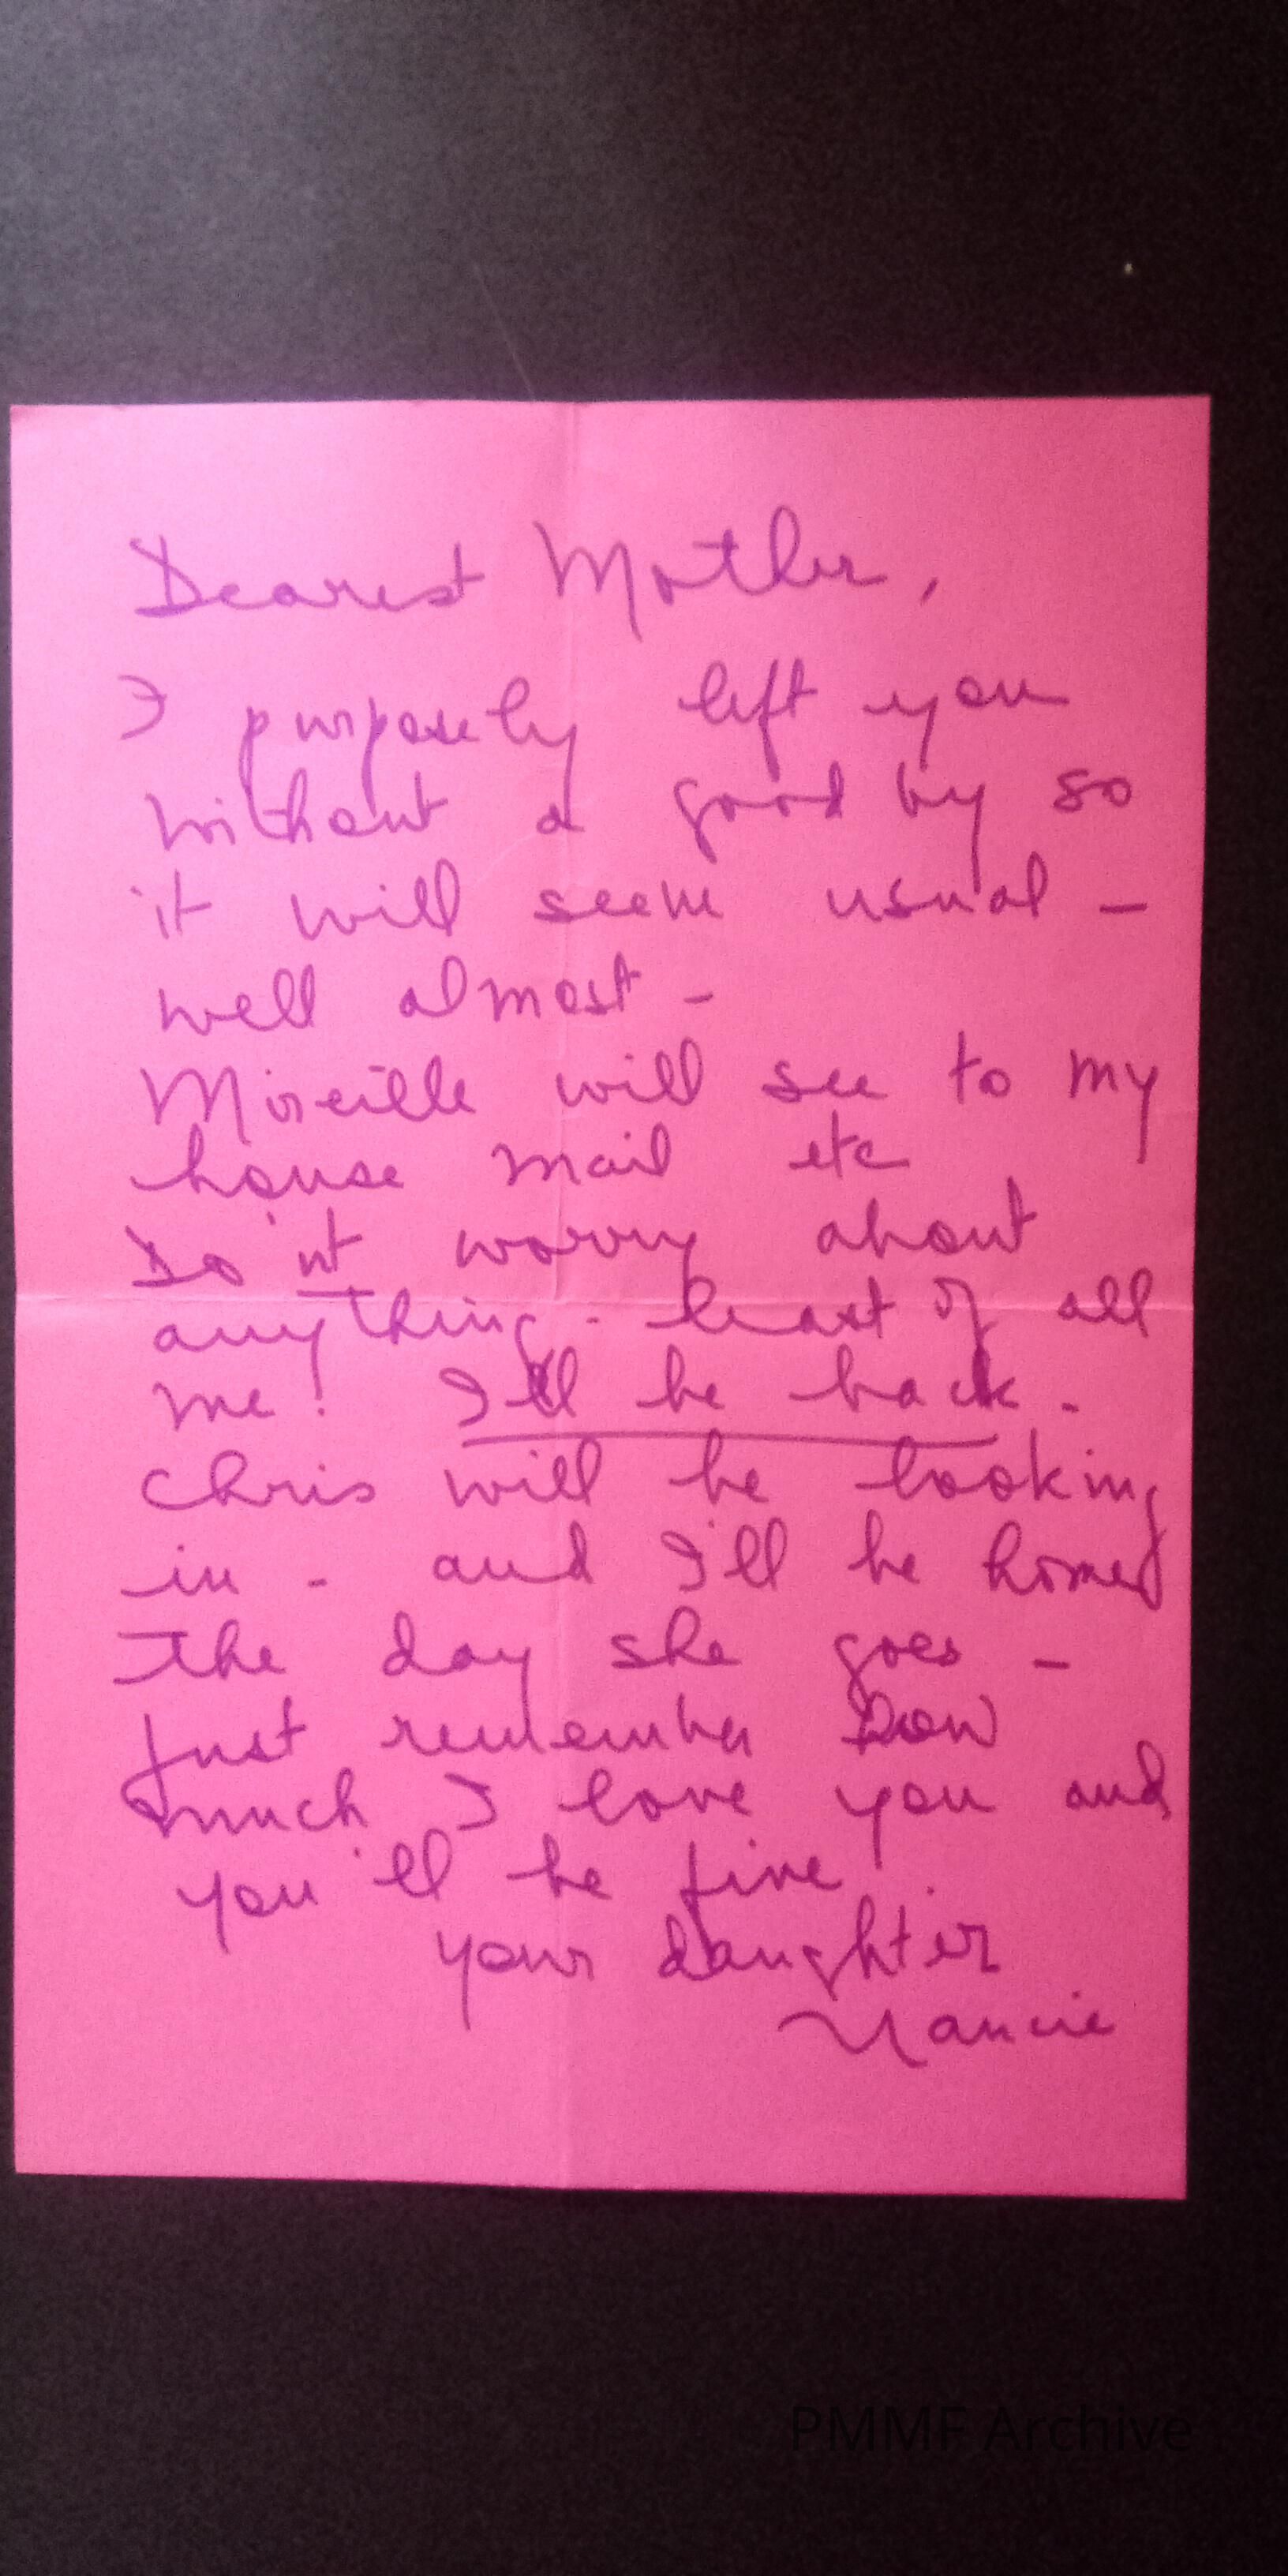 Dearest Mother,
I purposely left you
without a good by so
it will seem usual –
well almost –
Mireille will see to my
house mail etc
Do'nt worry about
anything - least of all
me! I'll be back.
Chris will be looking
in - and I'll be home
the day she goes –
Just remember how
much I love you and
you'll be fine.
your daughter
Nancie
PMMF Archive